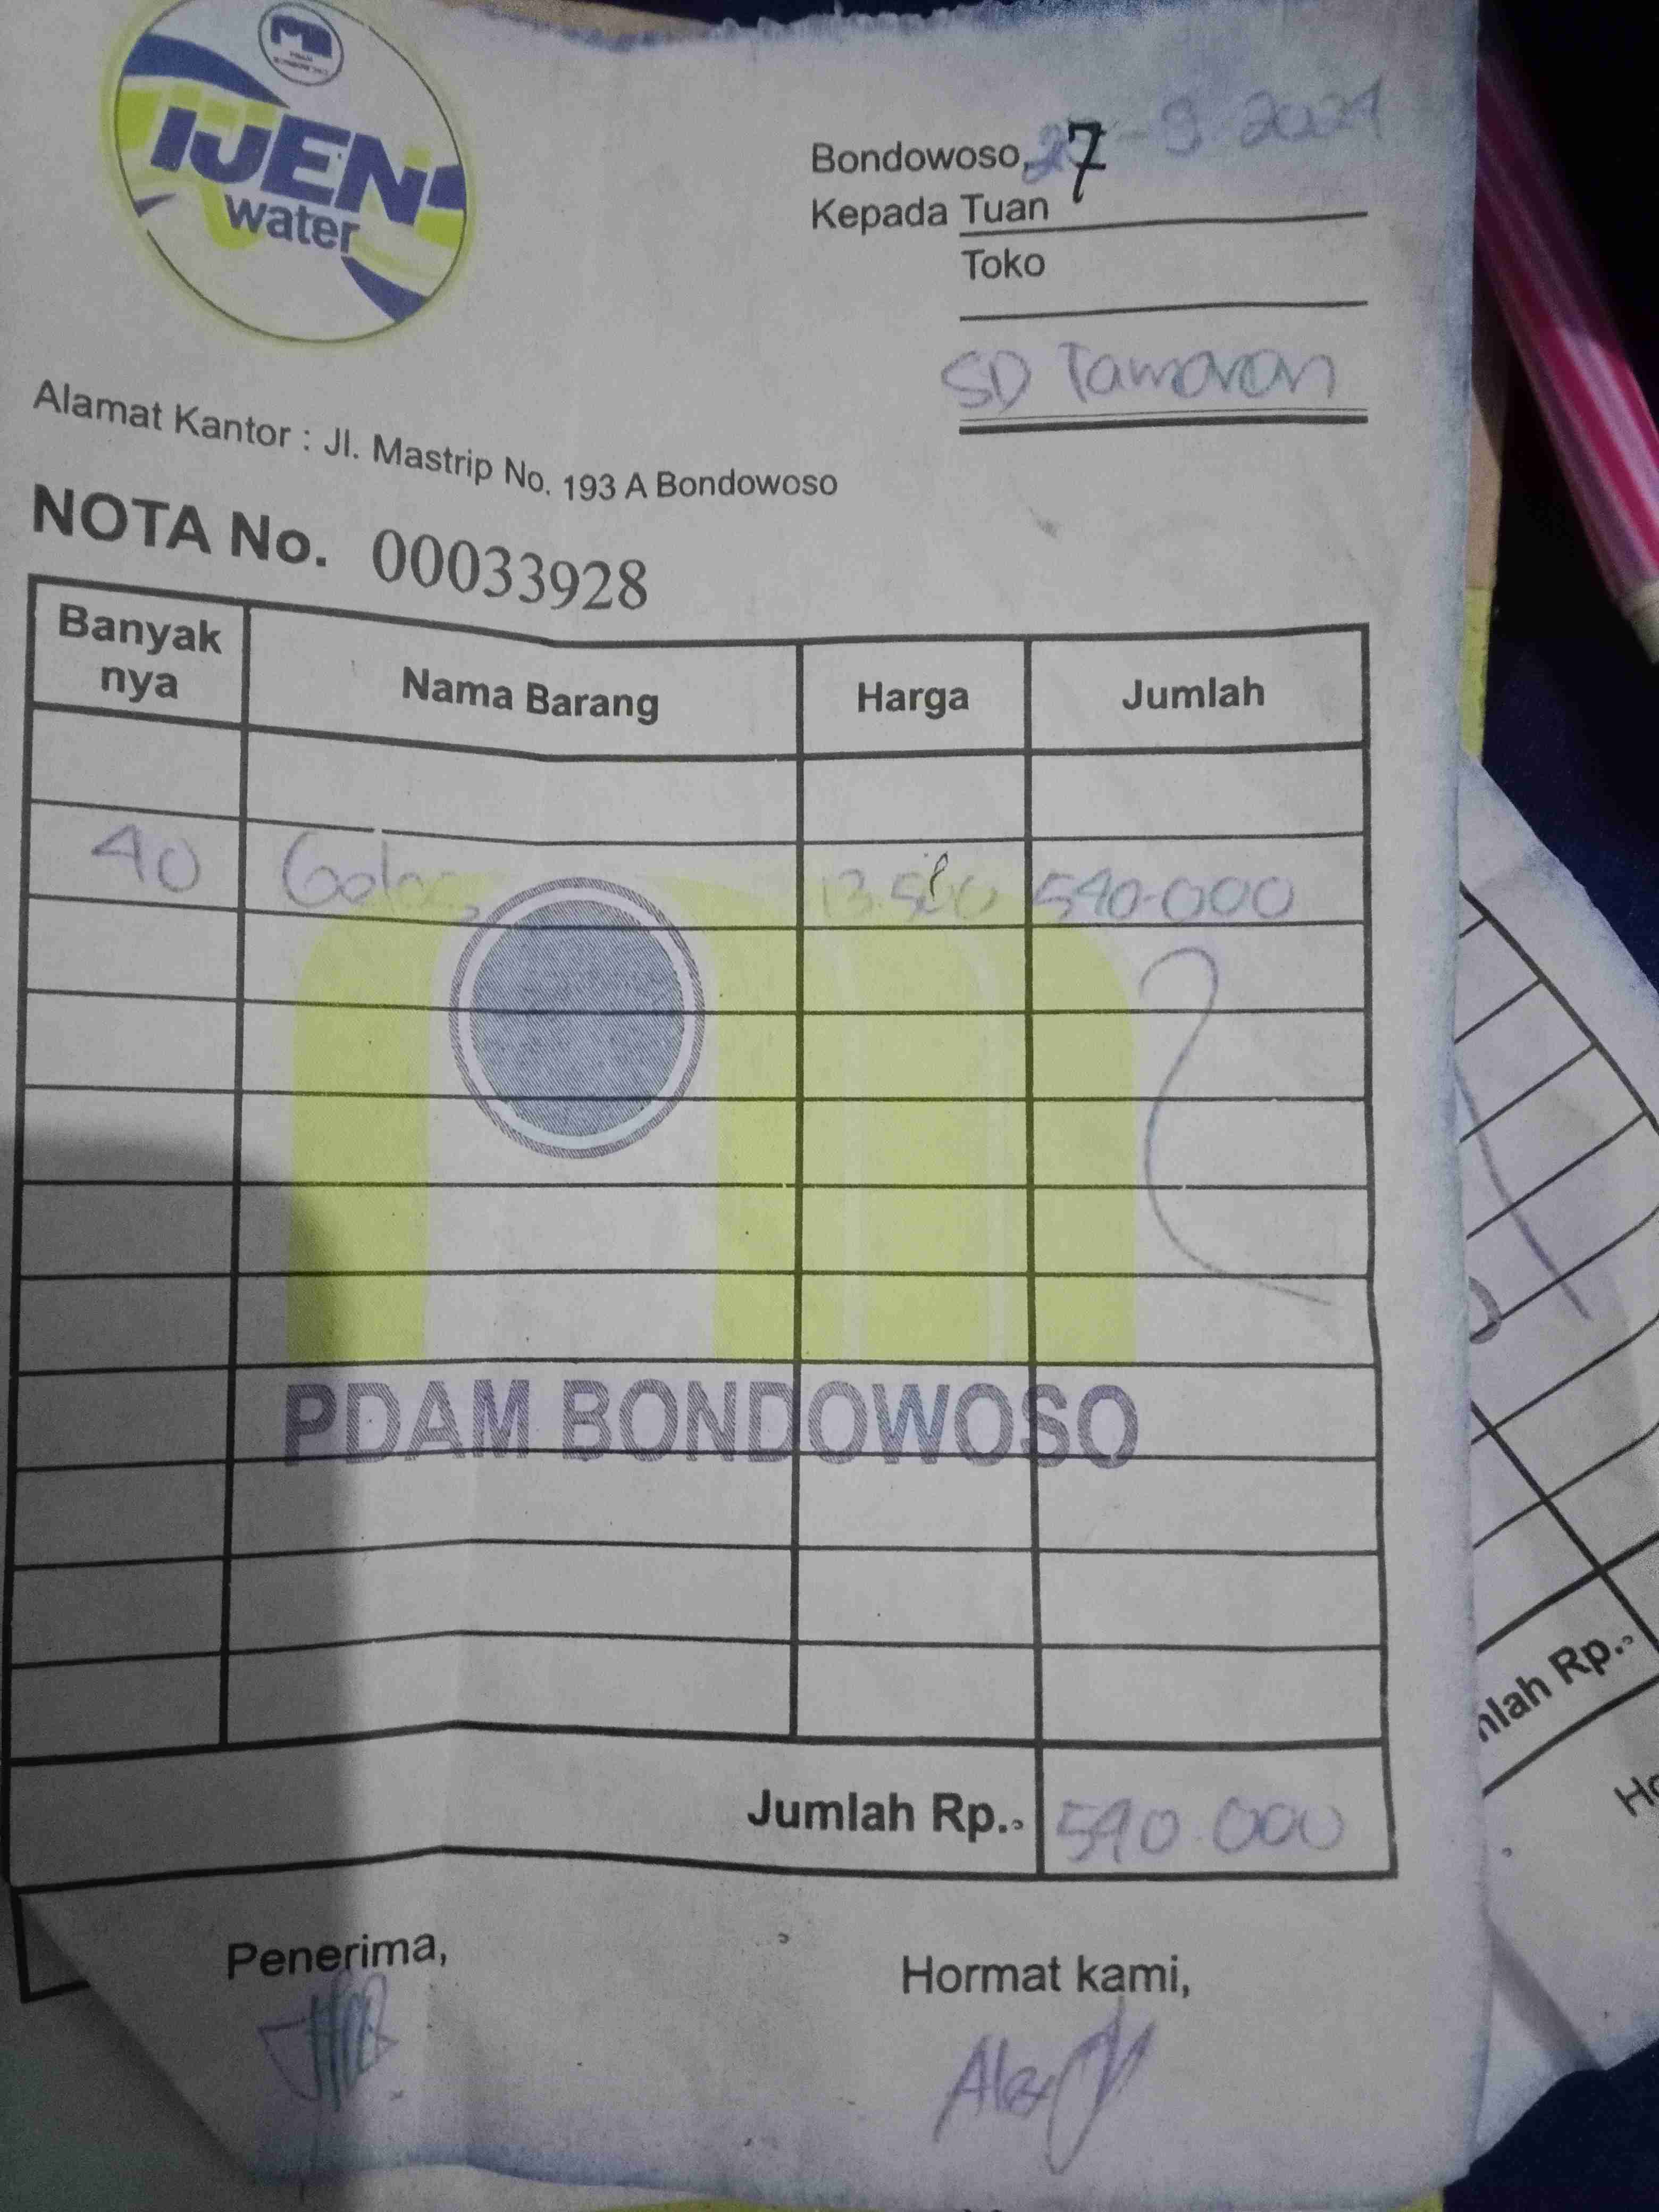 IJEN
water
Bondowoso, 27-9-2021
Kepada Tuan
Toko
SD Tamanan
Alamat Kantor : Jl. Mastrip No. 193 A Bondowoso
NOTA No. 00033928
Banyak nya Nama Barang Harga Jumlah
40 Galon 13.500 540.000
PDAM BONDOWOSO
Jumlah Rp. 540.000
Penerima, Hormat kami,
mlah Rp.